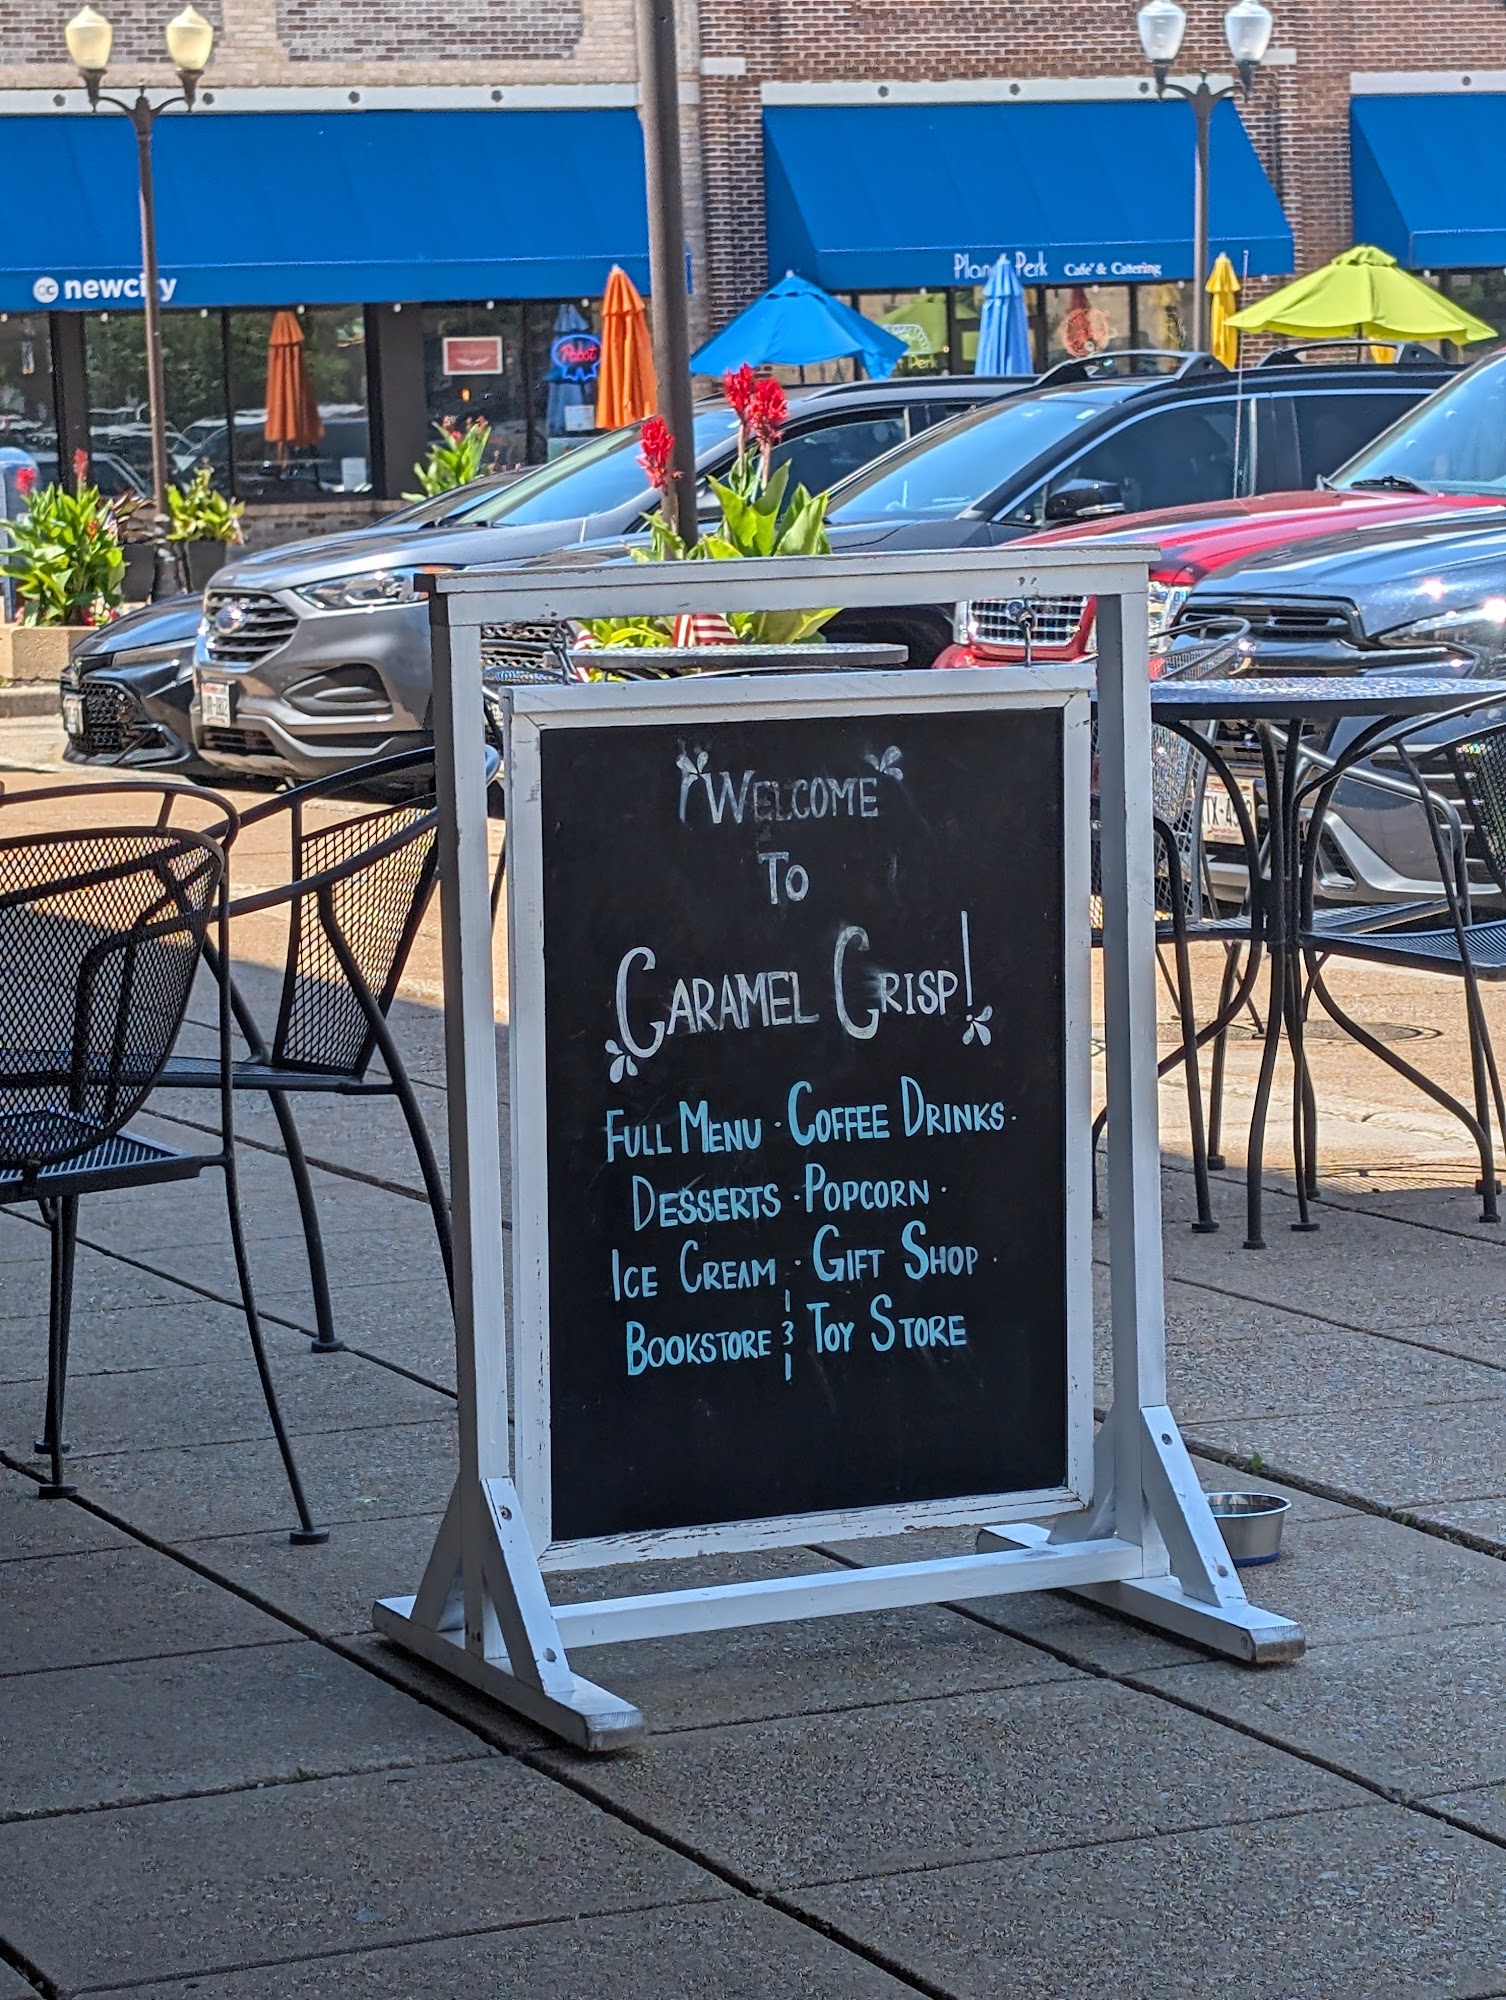 newcity
Planet Perk Café & Catering
Pabst
WELCOME
TO
CARAMEL CRISP!
FULL MENU · COFFEE DRINKS ·
DESSERTS · POPCORN ·
ICE CREAM · GIFT SHOP ·
BOOKSTORE & TOY STORE